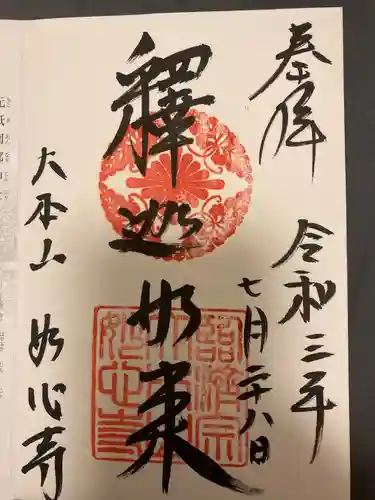 奉拝
令和三年
七月二十八日
釋迦如来
大本山 妙心寺
臨済宗
妙心寺